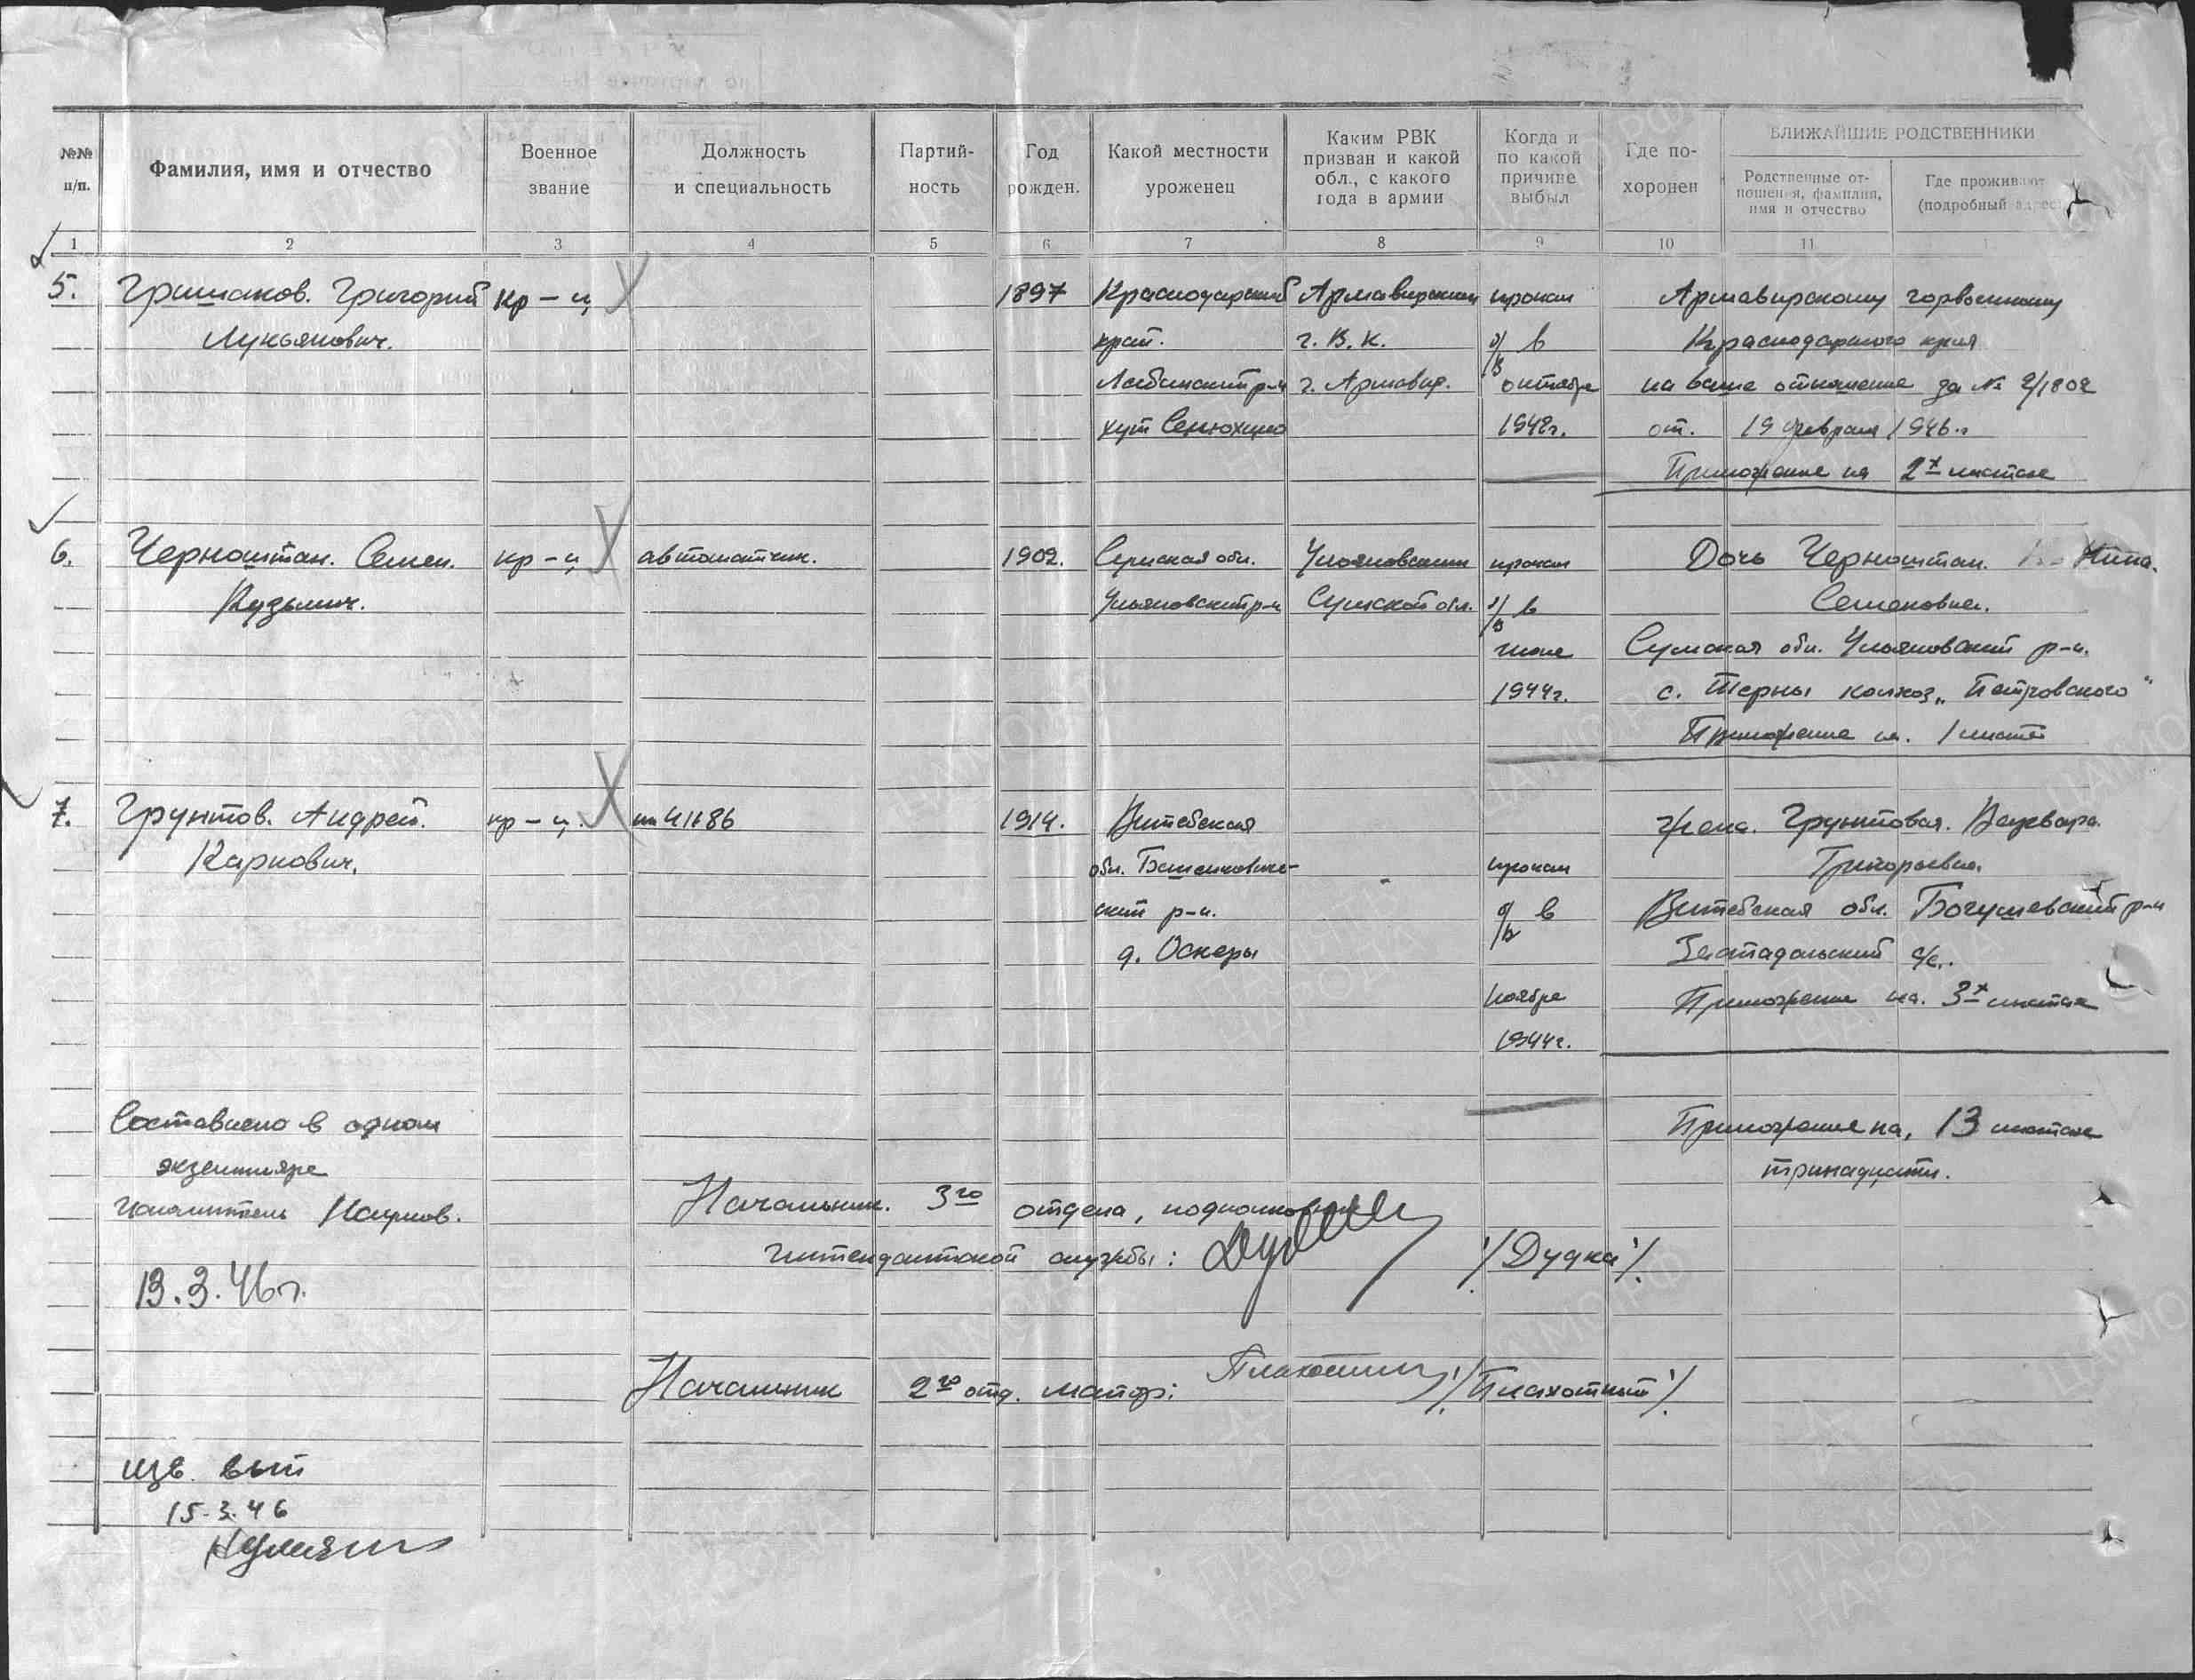 №№ п/п.
Фамилия, имя и отчество
Военное звание
Должность и специальность
Партий-
ность
Год рожден.
Какой местности уроженец
Каким РВК
призван и какой
обл., с какого
года в армии
Когда и
по какой
причине
выбыл
Где по-
хоронен
БЛИЖАЙШИЕ РОДСТВЕННИКИ
Родственные от-
ношения, фамилия,
имя и отчество
Где проживают
(подробный адрес)
1 2 3 4 5 6 7 8 9 10 11
5. Гришаков. Григорий кр-ц 1897 Краснодарский Армавирским пропал Армавирскому горвоенкому
Лукьянович. край. г. В. К. б/в в Краснодарского края
Лабинский р-н г. Армавир. октябре на ваше отношение за № 2/1802
хут Сенюхино 1942г. от. 19 февраля 1946.г
Приложение на 2х листах
6. Черноштан. Семен. кр-ц автоматчик. 1902. Сумская обл. Ульяновским пропал Дочь Черноштан. Нина.
Кузьмич. Ульяновский р-н Сумской обл. б/в в Семеновна.
июне Сумская обл. Ульяновский р-н.
1944г. с. Терны колхоз „Петровского"
Приложение на. 1 листе
7. Грунтов. Андрей. кр-ц. пп 41486 1914. Витебская жена. Грунтовая.
Карпович. обл. Бешенкович- пропал Григорьевна.
ский р-н. б/в в Витебская обл. Богушевский р-н
д. Оскеры с/с.
ноябре Приложение на. 3х листах
1944г.
Составлено в одном Приложение на, 13 листах
экземпляре тринадцати.
исполнитель Наумов. Начальник. 3го отдела, подполковник
интендантской службы: /Дудка/.
13.3.46г.
Начальник 2го отд. майор: /Плахотный/.
изв. вып
15.3.46
ПАМЯТЬ НАРОДА
ЦАМО РФ